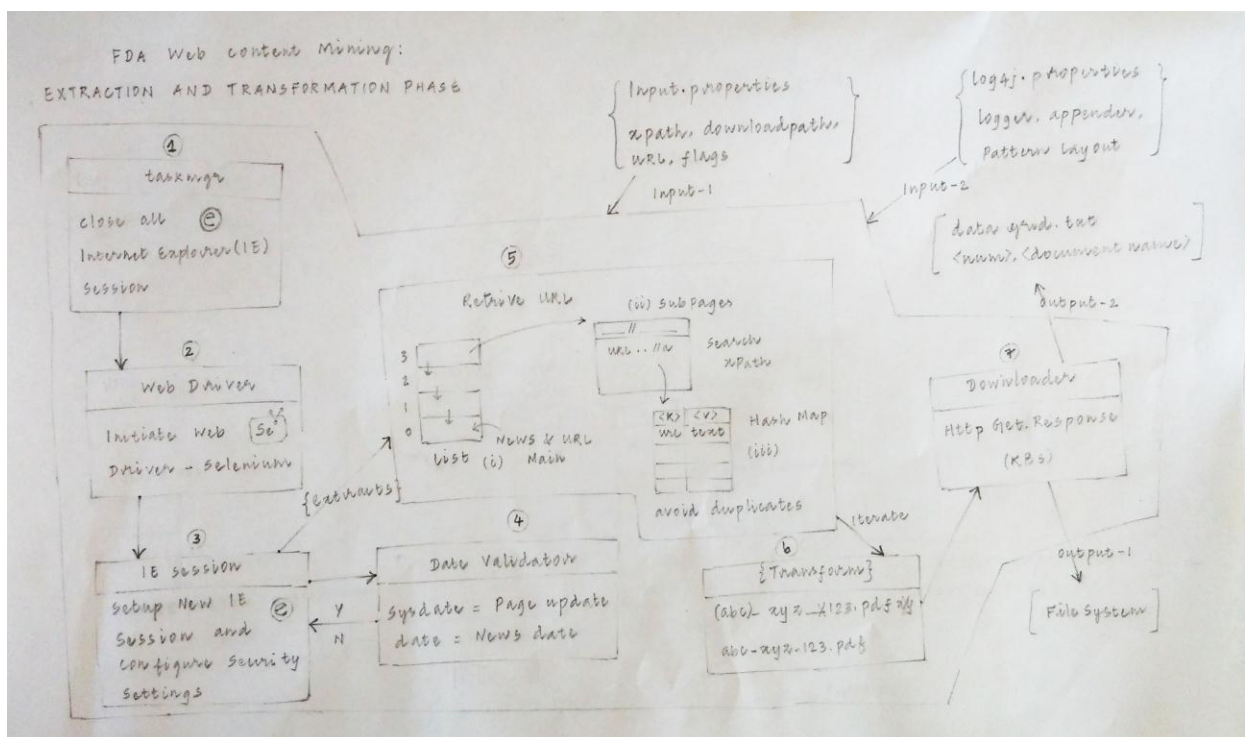 FDA Web content Mining:
EXTRACTION AND TRANSFORMATION PHASE
{ Input.properties
xpath, downloadpath,
URL, flags }
Input-1
{ log4j.properties
logger, appender,
Pattern Layout }
Input-2
1
taskmgr
close all e
Internet Explorer (IE)
session
2
Web Driver
Initiate Web Se
Driver - Selenium
{extracts}
3
IE session
Setup New IE e
Session and
configure Security
Settings
Y
N
4
Date Validator
Sysdate = Page update
date = News date
5
Retrive URL
3
2
1
0
News & URL
List (i) Main
(ii) Sub Pages
//
URL .. //a
Search
xPath
<K> <V>
url text
Hash Map
(iii)
avoid duplicates
Iterate
6
{Transform}
(abc)_ xyz _ 123.pdf
abc-xyz-123.pdf
7
Downloader
Http Get.Response
(KBs)
output-2
[ data grid.txt
<num>.<document name> ]
output-1
[ File System ]